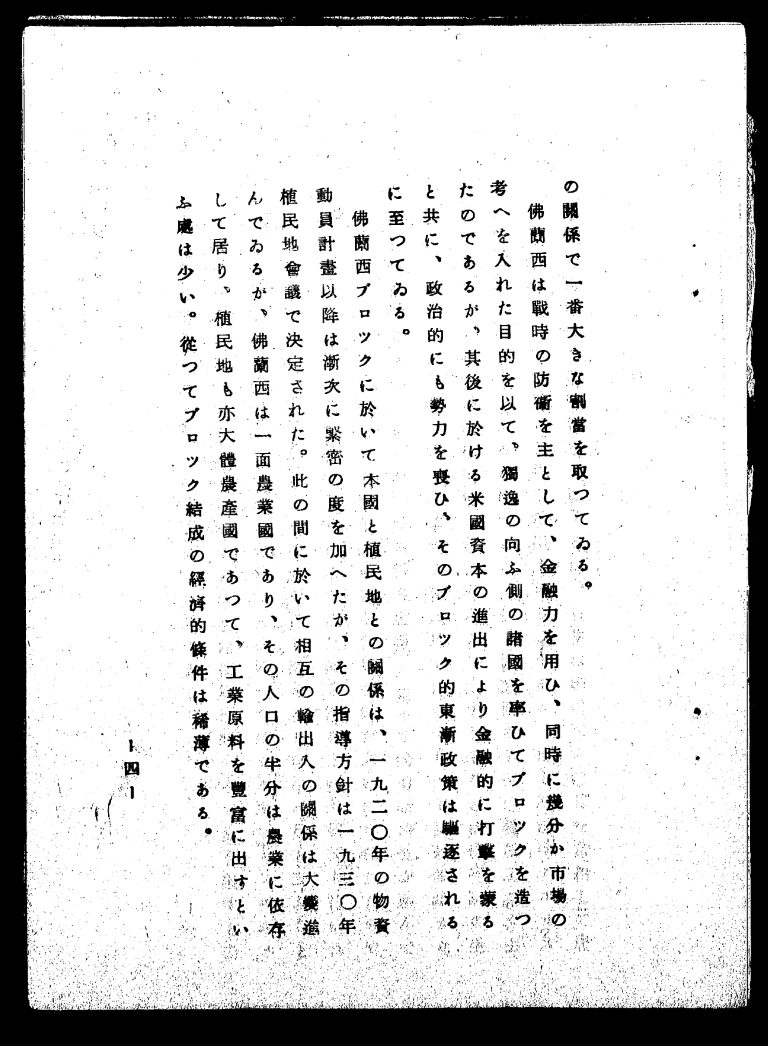 の關係で一番大きな割當を取つてゐる。
佛蘭西は戰時の防衞を主として、金融力を用ひ、同時に幾分か市場の
考へを入れた目的を以て、獨逸の向ふ側の諸國を率ひてブロツクを造つ
たのであるが、其後に於ける米國資本の進出により金融的に打擊を蒙る
と共に、政治的にも勢力を喪ひ、そのブロツク的東漸政策は驅逐される
に至つてゐる。
佛蘭西ブロツクに於いて本國と植民地との關係は、一九二〇年の物資
動員計畫以降は漸次に緊密の度を加へたが、その指導方針は一九三〇年
植民地會議で決定された。此の間に於いて相互の輸出入の關係は大變進
んでゐるが、佛蘭西は一面農業國であり、その人口の半分は農業に依存
して居り、植民地も亦大體農產國であつて、工業原料を豐富に出すとい
ふ處は少い。從つてブロツク結成の經濟的條件は稀薄である。
―四―